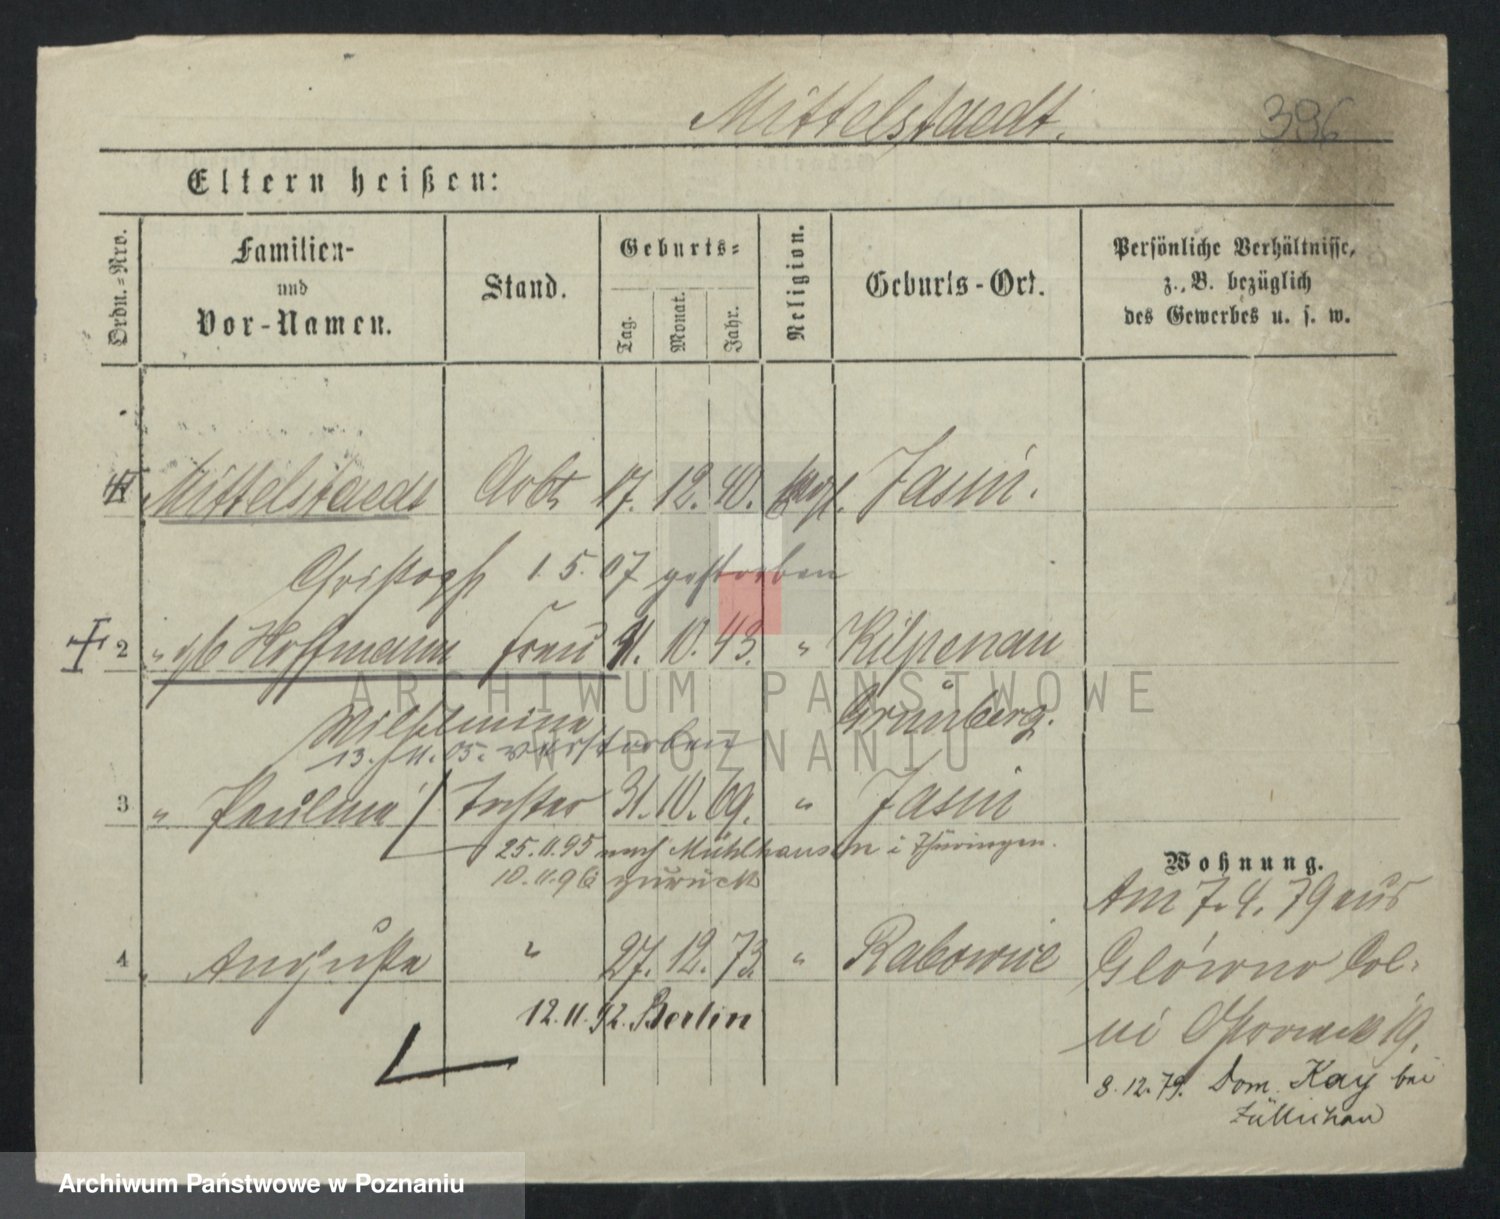 Mittelstaedt.
396
Eltern heißen:
Ordn.-Nro.
Familien-
und
Vor-Namen.
Stand.
Geburts-
Tag.
Monat.
Jahr.
Religion.
Geburts-Ort.
Persönliche Verhältnisse,
z. B. bezüglich
des Gewerbes u. s. w.
Mittelstaedt Arbt 17. 12. 40. Jasin.
Christoph 1. 5. 07 gestorben
2 " gb Hoffmann Frau 10. 43. " Kilpenau
Wilhelmine Grünberg.
13. 11. 05. verstorben
3 " Pauline Tochter 31. 10. 69. " Jasin
25.11.95 nach Mühlhausen i Thüringen.
10.11.96 zurück
4 " Auguste " 27. 12. 73. " Rabowice
12.11.92. Berlin
Wohnung.
Am 7. 4. 79 aus
Glówno Col-
19.
3.12.79. Dom. Kay bei
Züllichau
ARCHIWUM PAŃSTWOWE
W POZNANIU
Archiwum Państwowe w Poznaniu